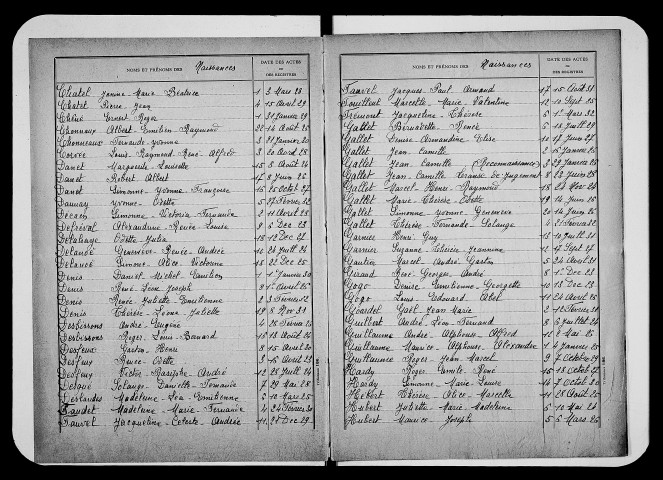 NOMS ET PRÉNOMS DES Naissances
DATE DES ACTES
DES REGISTRES
Chatel Janine Marie Béatrice 1 3 Mars 23
Chatel Pierre Jean 4 15 Avril 29
Chéné Ernest Roger 1 31 Janvier 29
Chonneaux Albert Emilien Raymond 22 14 Août 25
Chonneaux Fernande Yvonne 3 21 Janvier 20
Louis Raymond René Alfred 3 20 Avril 28
Danet Marguerite Louisette 15 8 Août 24
Danet Robert Albert 17 8 Juin 26
Danet Simonne Yvonne Françoise 16 25 Octobre 27
Daunay Yvonne Odette 5 27 Février 22
Decaen Simonne Victoria Fernande 2 11 Avril 25
Defréval Alexandrine Renée Louise 9 5 Dec 23
Delalange Odette Julia 15 12 Dec 27
Delande Geneviève Renée Andrée 10 26 Juillet 24
Delande Simone Alice Victorine 18 22 Dec 25
Denis Daniel Michel Emilien 1 1er Janvier 30
Denis René Léon Joseph 9 1er Avril 25
Denis Renée Juliette Emilienne 2 3 Février 22
Denis Thérèse Léone Juliette 19 8 Nov 31
Desbissons André Eugène 4 28 Février 24
Desbissons Roger Louis Bernard 15 13 Août 24
Desfeux Gaston Henri 3 15 Avril 20
Desfeux Renée Odette 3 16 Avril 23
Desfeux Victor Baptiste André 12 28 Juillet 24
Desgué Solange Danielle Fernande 7 29 Mai 28
Deslandes Madeleine Léa Emilienne 5 10 Mars 25
Faudet Madeleine Marie Fernande 4 24 Février 30
Fauvel Jacqueline Céleste Andrée 11 27 Dec 29
NOMS ET PRÉNOMS DES Naissances
DATE DES ACTES
DES REGISTRES
Fauvel Jacques Paul Armand 17 15 Août 31
Fouillent Marcelle Marie Valentine 12 10 Sept 25
Frémont Jacqueline Thérèse 5 1er Mars 32
Gallet Bernadette Renée 6 15 Juillet 29
Gallet Denise Armandine Elise 10 13 Juin 27
Gallet Jean Camille 2 16 Janvier 25
Gallet Jean Camille (Reconnaissance) 3 29 Janvier 25
Gallet Jean Camille Transc de Jugement 8 23 Juin 28
Gallet Marcel Henri Raymond 18 23 Nov 24
Gallet Marie Thérèse Odette 19 14 Juin 25
Gallet Simonne Yvonne Geneviève 20 14 Juin 25
Gallet Thérèse Fernande Solange 4 21 Février 22
Garnier Henri Guy 15 10 Juillet 31
Garnier Suzanne Patricia Jeannine 14 17 Sept 27
Gautier Marcel André Gaston 5 24 Avril 31
Giraud René Georges André 8 1er Dec 23
Gogo Denise Emilienne Georgette 10 13 Dec 23
Gogo Louis Edouard Abel 11 24 Avril 25
Gourdel Gaël Jean Marie 2 12 Février 31
Guilbert André Léon Fernand 8 6 Juillet 24
Guillaume André Alphonse Alfred 12 8 Mai 25
Guillaume Maurice Alphonse Alexandre 1 4 Janvier 25
Guillaumée Roger Jean Marcel 9 7 Octobre 29
Hardy Roger Emile René 15 13 Octobre 27
Hardy Simonne Marie Louise 14 7 Octobre 20
Hébert Thérèse Alice Marcelle 11 28 Août 25
Hubert Juliette Marie Madeleine 5 10 Mai 24
Hubert Maurice Joseph 5 5 Mars 25